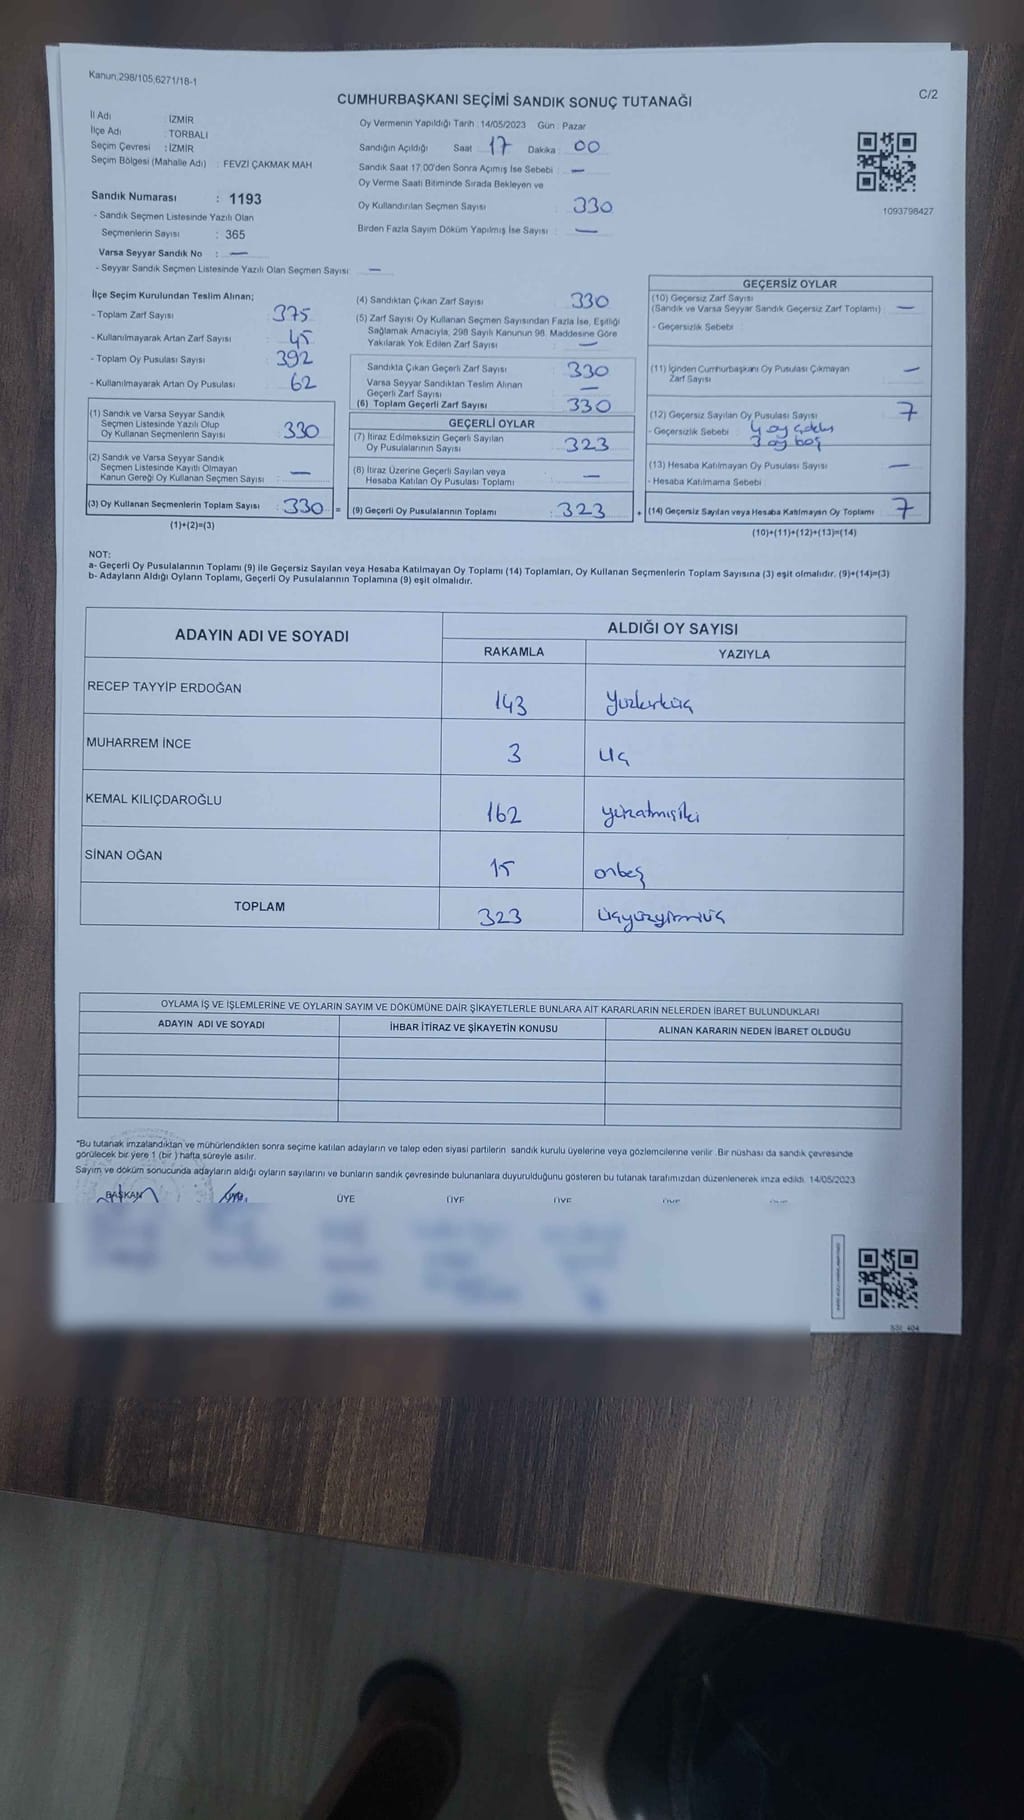 Kanun.298/105,6271/18-1
C/2
CUMHURBAŞKANI SEÇİMİ SANDIK SONUÇ TUTANAĞI
İl Adı : İZMİR
İlçe Adı : TORBALI
Seçim Çevresi : İZMİR
Seçim Bölgesi (Mahalle Adı) : FEVZİ ÇAKMAK MAH
Sandık Numarası : 1193
- Sandık Seçmen Listesinde Yazılı Olan
Seçmenlerin Sayısı : 365
Varsa Seyyar Sandık No : —
- Seyyar Sandık Seçmen Listesinde Yazılı Olan Seçmen Sayısı : —
Oy Vermenin Yapıldığı Tarih : 14/05/2023 Gün : Pazar
Sandığın Açıldığı Saat 17 Dakika : 00
Sandık Saat 17:00'den Sonra Açımış İse Sebebi : —
Oy Verme Saati Bitiminde Sırada Bekleyen ve
Oy Kullandırılan Seçmen Sayısı : 330
Birden Fazla Sayım Döküm Yapılmış İse Sayısı : —
1093798427
İlçe Seçim Kurulundan Teslim Alınan;
- Toplam Zarf Sayısı : 375
- Kullanılmayarak Artan Zarf Sayısı : 45
- Toplam Oy Pusulası Sayısı : 392
- Kullanılmayarak Artan Oy Pusulası : 62
(1) Sandık ve Varsa Seyyar Sandık
Seçmen Listesinde Yazılı Olup
Oy Kullanan Seçmenlerin Sayısı : 330
(2) Sandık ve Varsa Seyyar Sandık
Seçmen Listesinde Kayıtlı Olmayan
Kanun Gereği Oy Kullanan Seçmen Sayısı : —
(3) Oy Kullanan Seçmenlerin Toplam Sayısı : 330 =
(1)+(2)=(3)
(4) Sandıktan Çıkan Zarf Sayısı : 330
(5) Zarf Sayısı Oy Kullanan Seçmen Sayısından Fazla İse, Eşitliği
Sağlamak Amacıyla, 298 Sayılı Kanunun 98. Maddesine Göre
Yakılarak Yok Edilen Zarf Sayısı : —
Sandıkta Çıkan Geçerli Zarf Sayısı : 330
Varsa Seyyar Sandıktan Teslim Alınan
Geçerli Zarf Sayısı : —
(6) Toplam Geçerli Zarf Sayısı : 330
GEÇERLİ OYLAR
(7) İtiraz Edilmeksizin Geçerli Sayılan
Oy Pusulalarının Sayısı : 323
(8) İtiraz Üzerine Geçerli Sayılan veya
Hesaba Katılan Oy Pusulası Toplamı : —
(9) Geçerli Oy Pusulalarının Toplamı : 323 +
GEÇERSİZ OYLAR
(10) Geçersiz Zarf Sayısı
(Sandık ve Varsa Seyyar Sandık Geçersiz Zarf Toplamı) : —
- Geçersizlik Sebebi :
(11) İçinden Cumhurbaşkanı Oy Pusulası Çıkmayan
Zarf Sayısı : —
(12) Geçersiz Sayılan Oy Pusulası Sayısı : 7
- Geçersizlik Sebebi : 4 oy
3 oy boş
(13) Hesaba Katılmayan Oy Pusulası Sayısı : —
- Hesaba Katılmama Sebebi :
(14) Geçersiz Sayılan veya Hesaba Katılmayan Oy Toplamı : 7
(10)+(11)+(12)+(13)=(14)
NOT:
a- Geçerli Oy Pusulalarının Toplamı (9) ile Geçersiz Sayılan veya Hesaba Katılmayan Oy Toplamı (14) Toplamları, Oy Kullanan Seçmenlerin Toplam Sayısına (3) eşit olmalıdır. (9)+(14)=(3)
b- Adayların Aldığı Oyların Toplamı, Geçerli Oy Pusulalarının Toplamına (9) eşit olmalıdır.
ADAYIN ADI VE SOYADI
ALDIĞI OY SAYISI
RAKAMLA YAZIYLA
RECEP TAYYİP ERDOĞAN 143 Yüzkırküç
MUHARREM İNCE 3 üç
KEMAL KILIÇDAROĞLU 162 yüzatmışiki
SİNAN OĞAN 15 onbeş
TOPLAM 323 üçyüzyirmiüç
OYLAMA İŞ VE İŞLEMLERİNE VE OYLARIN SAYIM VE DÖKÜMÜNE DAİR ŞİKAYETLERLE BUNLARA AİT KARARLARIN NELERDEN İBARET BULUNDUKLARI
ADAYIN ADI VE SOYADI İHBAR İTİRAZ VE ŞİKAYETİN KONUSU ALINAN KARARIN NEDEN İBARET OLDUĞU
*Bu tutanak imzalandıktan ve mühürlendikten sonra seçime katılan adayların ve talep eden siyasi partilerin sandık kurulu üyelerine veya gözlemcilerine verilir. Bir nüshası da sandık çevresinde
görülecek bir yere 1 (bir ) hafta süreyle asılır.
Sayım ve döküm sonucunda adayların aldığı oyların sayılarını ve bunların sandık çevresinde bulunanlara duyurulduğunu gösteren bu tutanak tarafımızdan düzenlenerek imza edildi. 14/05/2023
BAŞKAN ÜYE ÜYE ÜYE ÜYE